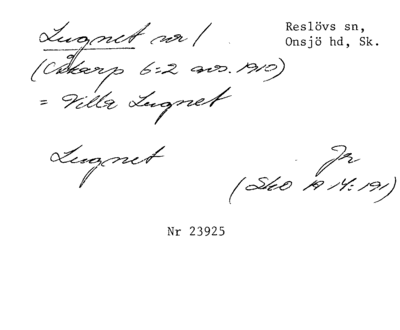 Lugnet nr 1
Reslövs sn,
Onsjö hd, Sk.
(Åkarp 6:2 avs. 1910)
= Villa Lugnet
Lugnet Jr
(Sko 19 14:191)
Nr 23925